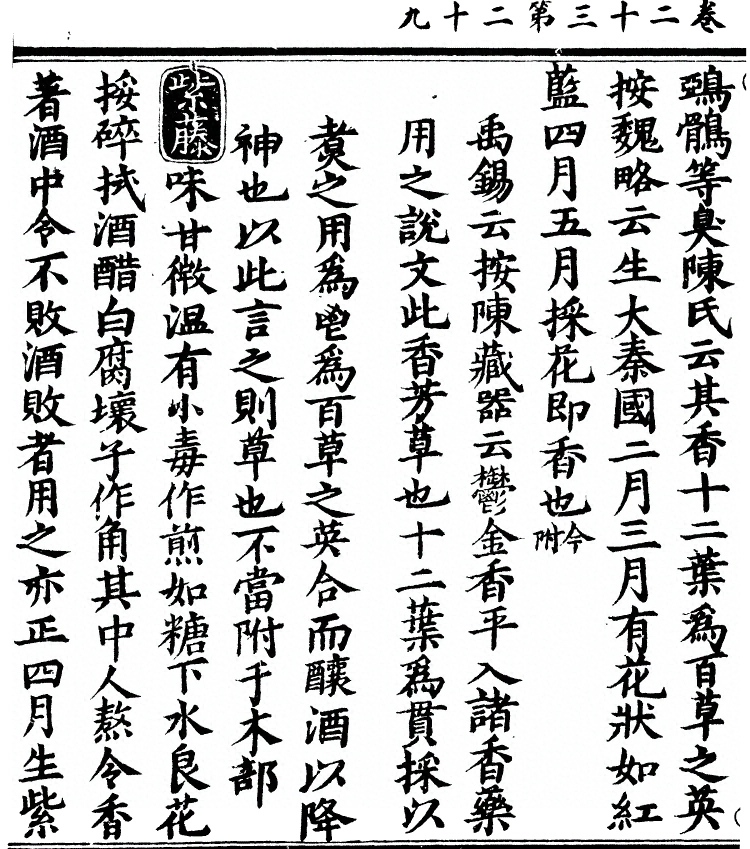 卷二十三第二十九
鵶鶻等臭陳氏云其香十二葉爲百草之英
按魏略云生大秦國二月三月有花狀如紅
藍四月五月採花即香也今附
禹錫云按陳藏器云鬱金香平入諸香藥
用之說文此香芳草也十二葉爲貫採以
煑之用爲鬯爲百草之英合而釀酒以降
神也以此言之則草也不當附于木部
紫藤味甘微溫有小毒作煎如糖下水良花
挼碎拭酒醋白腐壞子作角其中人熬令香
著酒中令不敗酒敗者用之亦正四月生紫